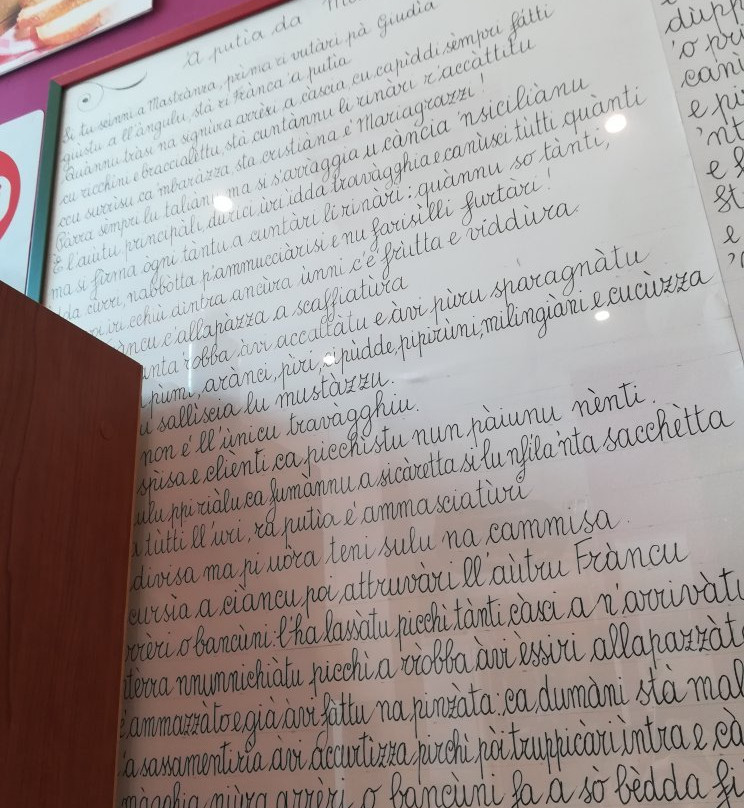 'a putia da
Si tu scinni a Mastrànza, prima ri vutàri pà Giudìa
giustu a ll'àngulu, stà ri Frànca 'a putìa
Quànnu tràsi na signùra arrèri a càscia cu capìddi sèmpri fátti
cu ricchìni e braccialèttu, stà cuntànnu li rinàri r'accàttitu
ccu surrìsu ca 'mbaràzza, sta cristiàna è Mariagràzzi!
Pàrra sèmpri lu taliànu ma si s'arràggia u cància 'nsiciliànu
È l'aiùtu principàli, dùrici uri idda travàgghia e canùsci tùtti quànti
ma si fìrma ògni tàntu a cuntàri li rinàri: quànnu so tànti,
dda curri, n'abbòtta p'ammucciàrisi e nu farisìlli furtàri!
cchiù dintra ancùra ùnni c'è frùtta e viddùra
àncu c'allapàzza a scaffiatùra
ànta ròbba àvi accattàtu e àvi pùru sparagnàtu
pùmi, arànci, pìri, cipùdde, pipirùni, milingiàni e cucùzza
u sallìscia lu mustàzzu.
non è ll'ùnicu travàgghiu.
spìsa e cliènti ca picchìstu nun pàiunu nènti.
ulu ppi riàlu ca fumànnu a sicarètta si lu nfila 'nta sacchètta
a tùtti ll'uri, rà putìa è ammasciatùri
divìsa ma pi uòra teni sulu na cammìsa
cursìa a ciàncu poi attruvàri ll'aùtru Fràncu
rrèri o bancùni: l'ha lassàtu picchì tànti càsci a n'arrivàtu
tèrra nnumnichiàtu picchì a rròbba àvi èssiri allapazzàt
è ammazzàto e già àvi fàttu na pinzàta: ca dumàni stà mal
'a sassamentirìa àvi accurtìzza pirchì pòi truppicàri intra e cà
màgghia niùra arrèri o bancùni fa a sò bèdda fi
dùpp
'o pri
cani
e pi
'nt
e
St
e